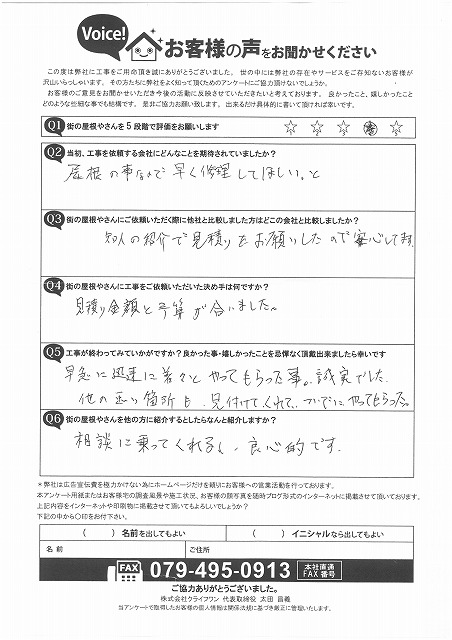 Voice!
お客様の声をお聞かせください
この度は弊社に工事をご用命頂き誠にありがとうございました。 世の中には弊社の存在やサービスをご存知ないお客様が
沢山いらっしゃいます。その方たちに弊社をよく知って頂くためのアンケートにご協力頂けないでしょうか。
お客様のご意見をお聞かせいただき今後の活動に反映させていただきたいと考えております。 良かったこと、嬉しかったこと
どのような些細な事でも結構です。 是非ご協力お願い致します。 出来るだけ具体的に書いて頂ければ幸いです。
Q1 街の屋根やさんを5段階で評価をお願いします ☆ ☆ ☆ ☆ ☆
Q2 当初、工事を依頼する会社にどんなことを期待されていましたか？
屋根の事なので早く修理してほしい。と
Q3 街の屋根やさんにご依頼いただく際に他社と比較しました方はどこの会社と比較しましたか？
知人の紹介で見積りをお願いしたので安心してます
Q4 街の屋根やさんに工事をご依頼いただいた決め手は何ですか？
見積り金額と予算が合いました。
Q5 工事が終わってみていかがですか？良かった事・嬉しかったことを忌憚なく頂戴出来ましたら幸いです
早急に迅速に着々とやってもらった事。誠実でした
他の悪い箇所も 見付けてくれて、ついでに、やってもらった。
Q6 街の屋根やさんを他の方に紹介するとしたらなんと紹介しますか？
相談に乗ってくれるよ、良心的です。
＊弊社は広告宣伝費を極力かけない為にホームページだけを頼りにお客様への営業活動を行っております。
本アンケート用紙またはお客様宅の調査風景や施工状況、お客様の顔写真を随時ブログ形式のインターネットに掲載させて頂いております。
上記内容をインターネットや印刷物に掲載させて頂いてもよろしいでしょうか？
下記の中から〇印をお付下さい。
（　　）名前を出してもよい （　　）イニシャルなら出してもよい
名 前 ご住所
FAX 079-495-0913 本社直通 FAX番号
ご協力ありがとうございました。
株式会社クライフワン 代表取締役 太田 昌義
当アンケートで取得したお客様の個人情報は関係法規に基づき厳正に管理いたします。